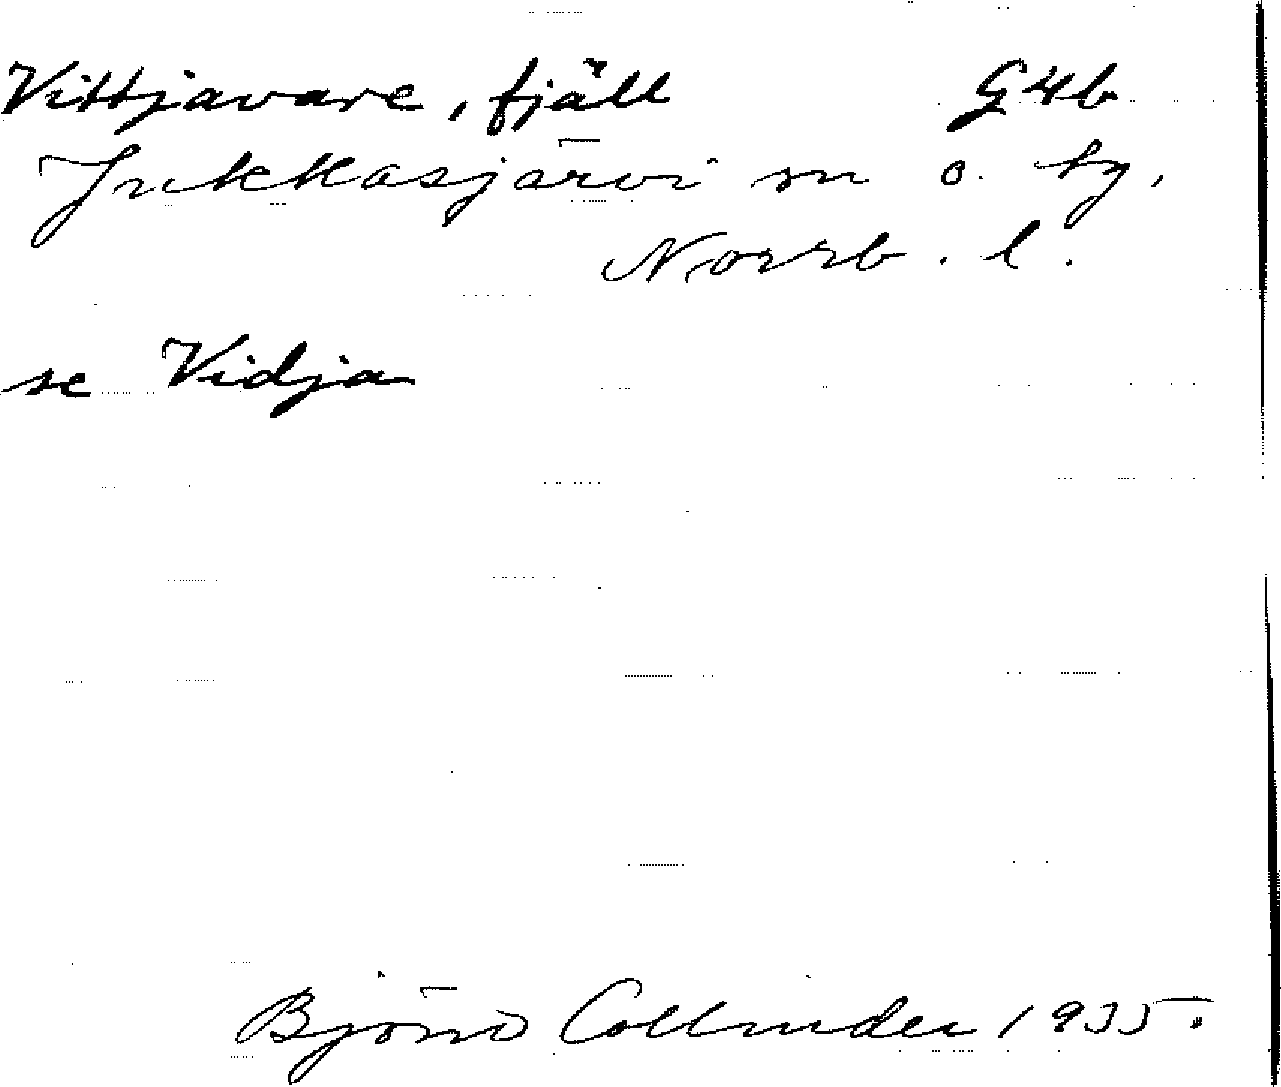 Vittjavare, fjäll G4b
Jukkasjärvi sn o. tg,
Norrb. l.
se Vidja
Björn Collinder 1935.